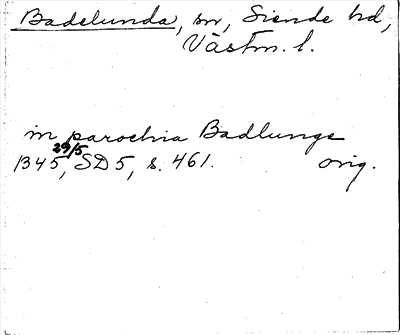 Badelunda, sn, Siende hd,
Västm. l.
in parochia Badlunge
1345 29/5, SD 5, s. 461. orig.